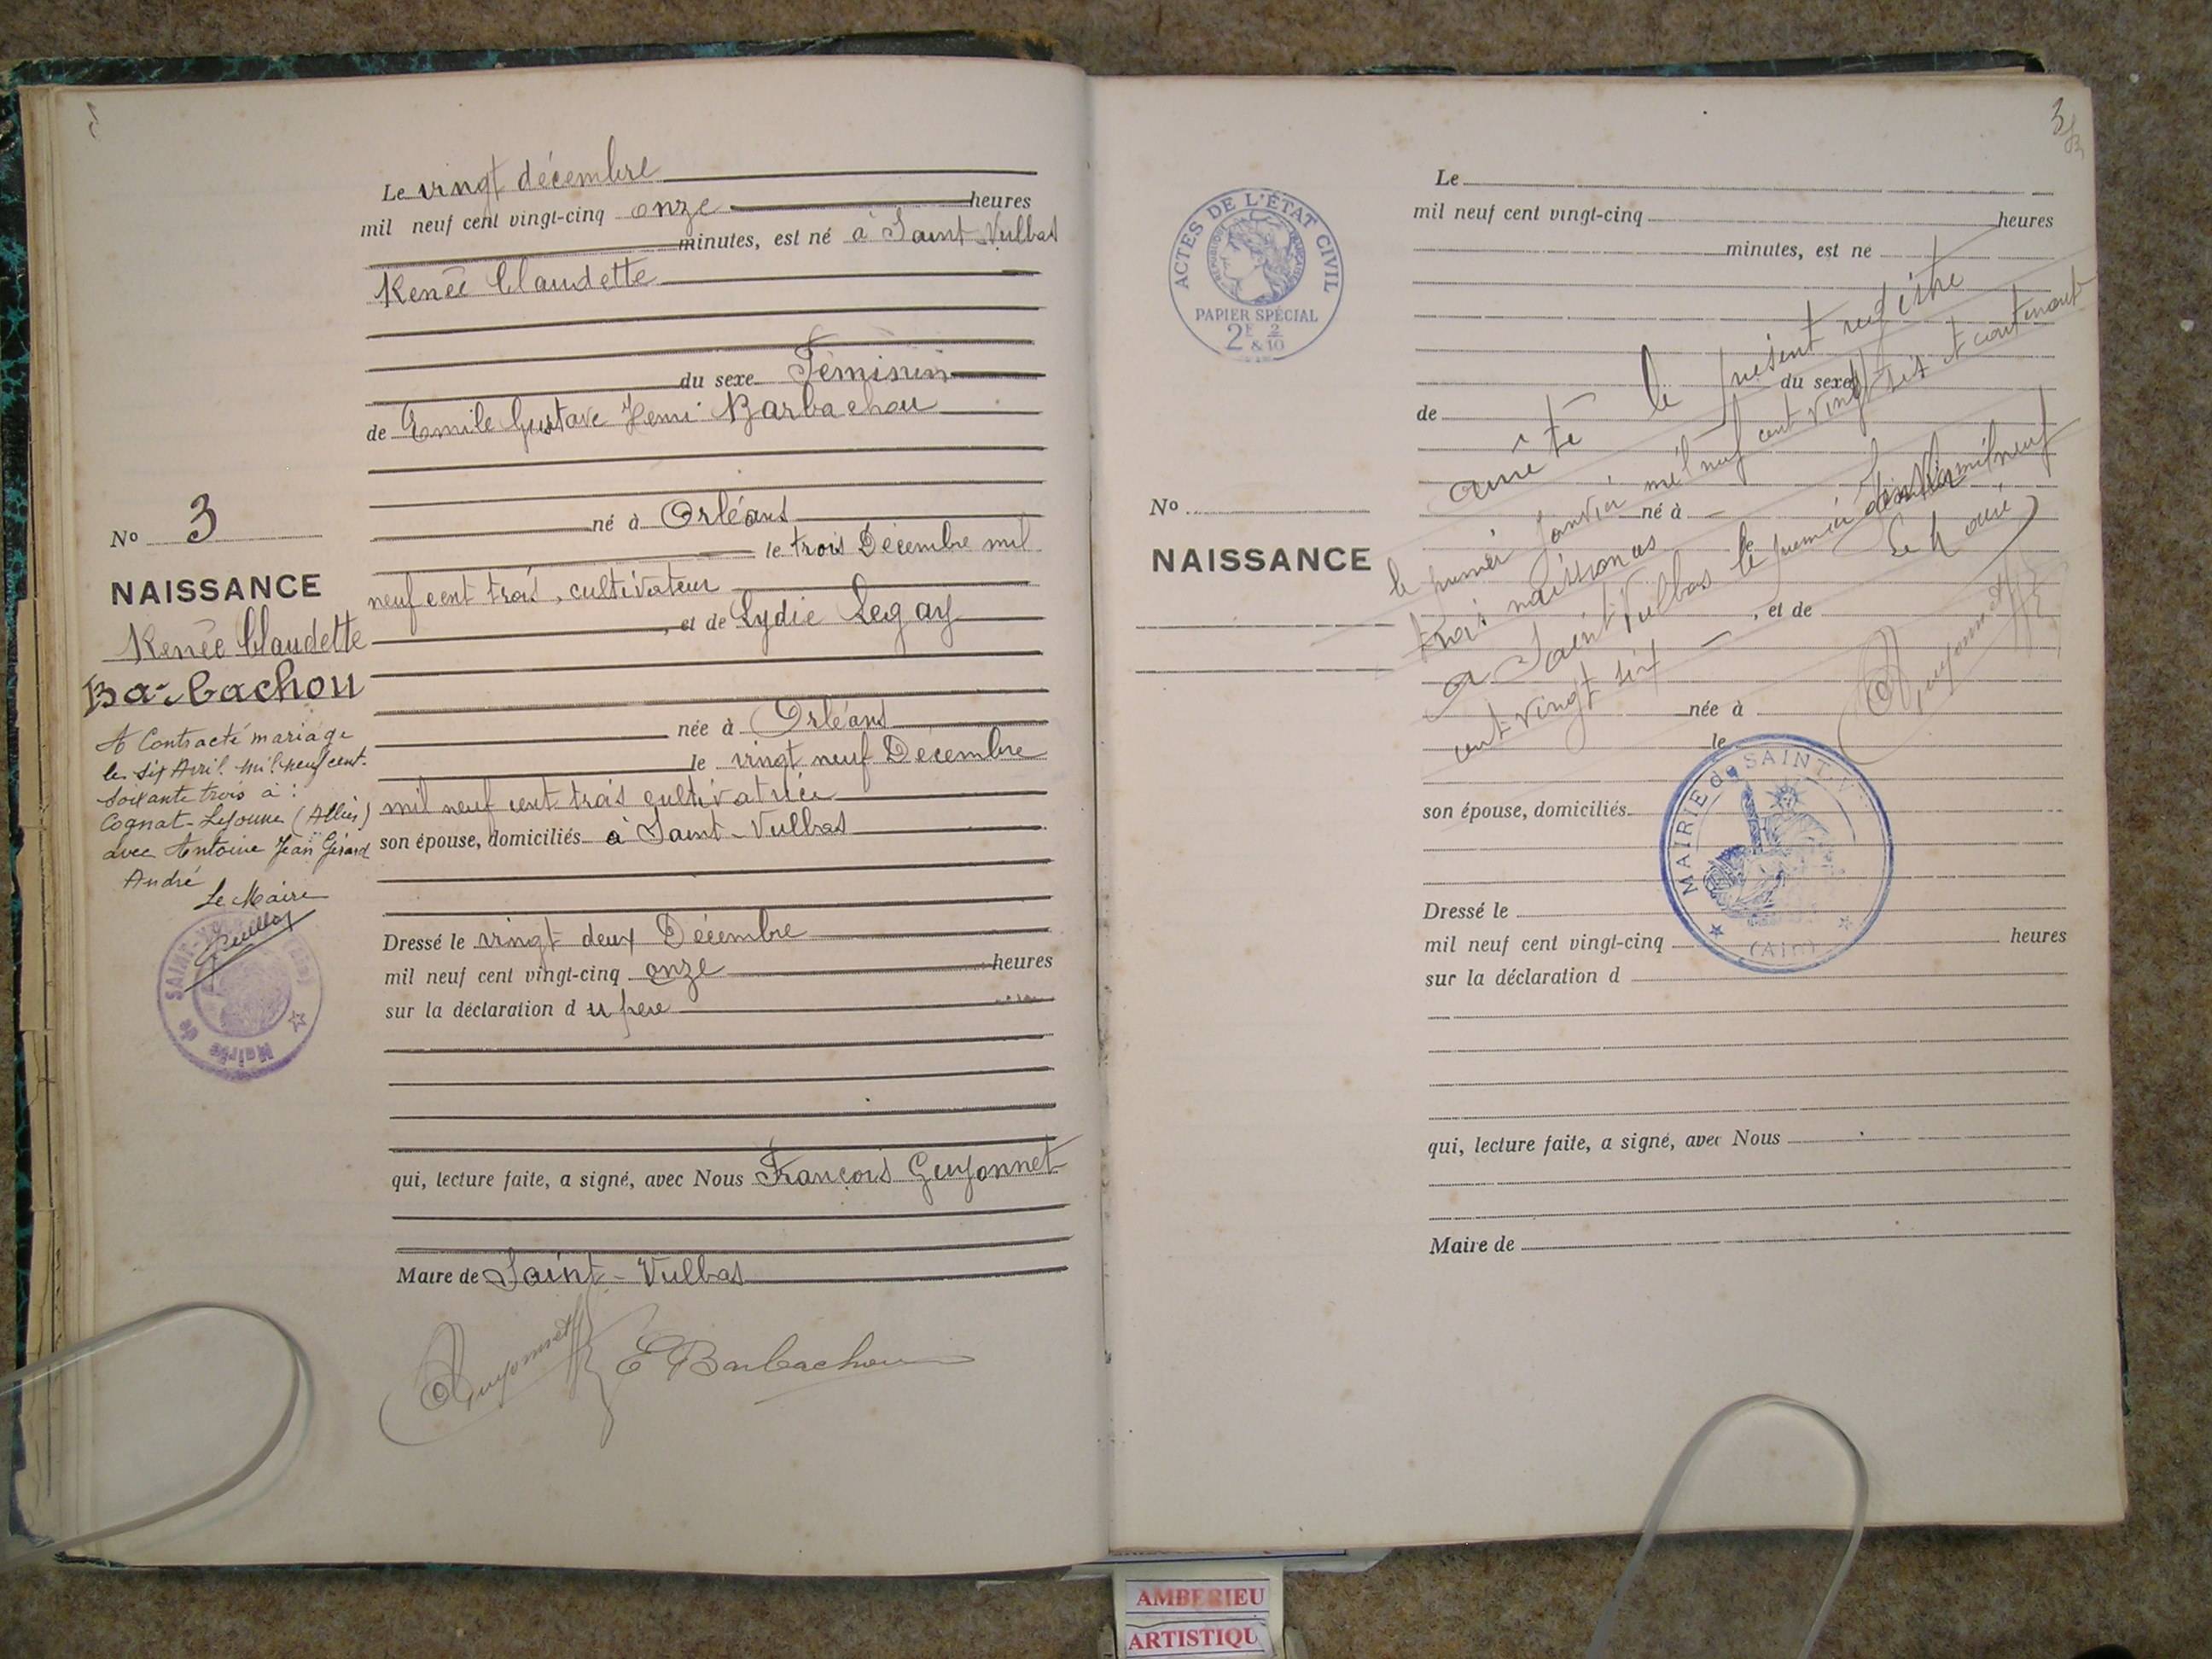 Le vingt décembre
mil neuf cent vingt-cinq onze heures
minutes, est né à Saint-Vulbas
Renée Claudette
du sexe Féminin
de Emile Gustave Henri Barbachou
né à Orléans
le trois Décembre mil
neuf cent trois, cultivateur
, et de Lydie Legay
née à Orléans
le vingt neuf Décembre
mil neuf cent trois cultivatrice
son épouse, domiciliés à Saint-Vulbas
Dressé le vingt deux Décembre
mil neuf cent vingt-cinq onze heures
sur la déclaration d u père
qui, lecture faite, a signé, avec Nous François Guyonnet
Maire de Saint-Vulbas
Guyonnet E Barbachou
No 3
NAISSANCE
Renée Claudette
Barbachou
A Contracté mariage
le six Avril mil neuf cent
soixante trois à :
Cognat-Lyonne (Allier)
avec Antoine Jean Gérard
André
Le Maire
Mairie de SAINT-VULBAS (Ain)
3
ACTES DE L'ÉTAT CIVIL
RÉPUBLIQUE FRANÇAISE
PAPIER SPÉCIAL
2F 2
& 10
No
NAISSANCE
Le
mil neuf cent vingt-cinq heures
minutes, est né
du sexe
de
né à
le
, et de
née à
le
son épouse, domiciliés
Dressé le
mil neuf cent vingt-cinq heures
sur la déclaration d
qui, lecture faite, a signé, avec Nous
Maire de
arrêté le présent registre
le premier Janvier mil neuf cent vingt six et contenant
trois naissances
a Saint Vulbas le premier Janvier mil neuf
cent vingt six
Le Maire
Guyonnet
MAIRIE de SAINT-V
(Ain)
AMBERIEU
ARTISTIQU